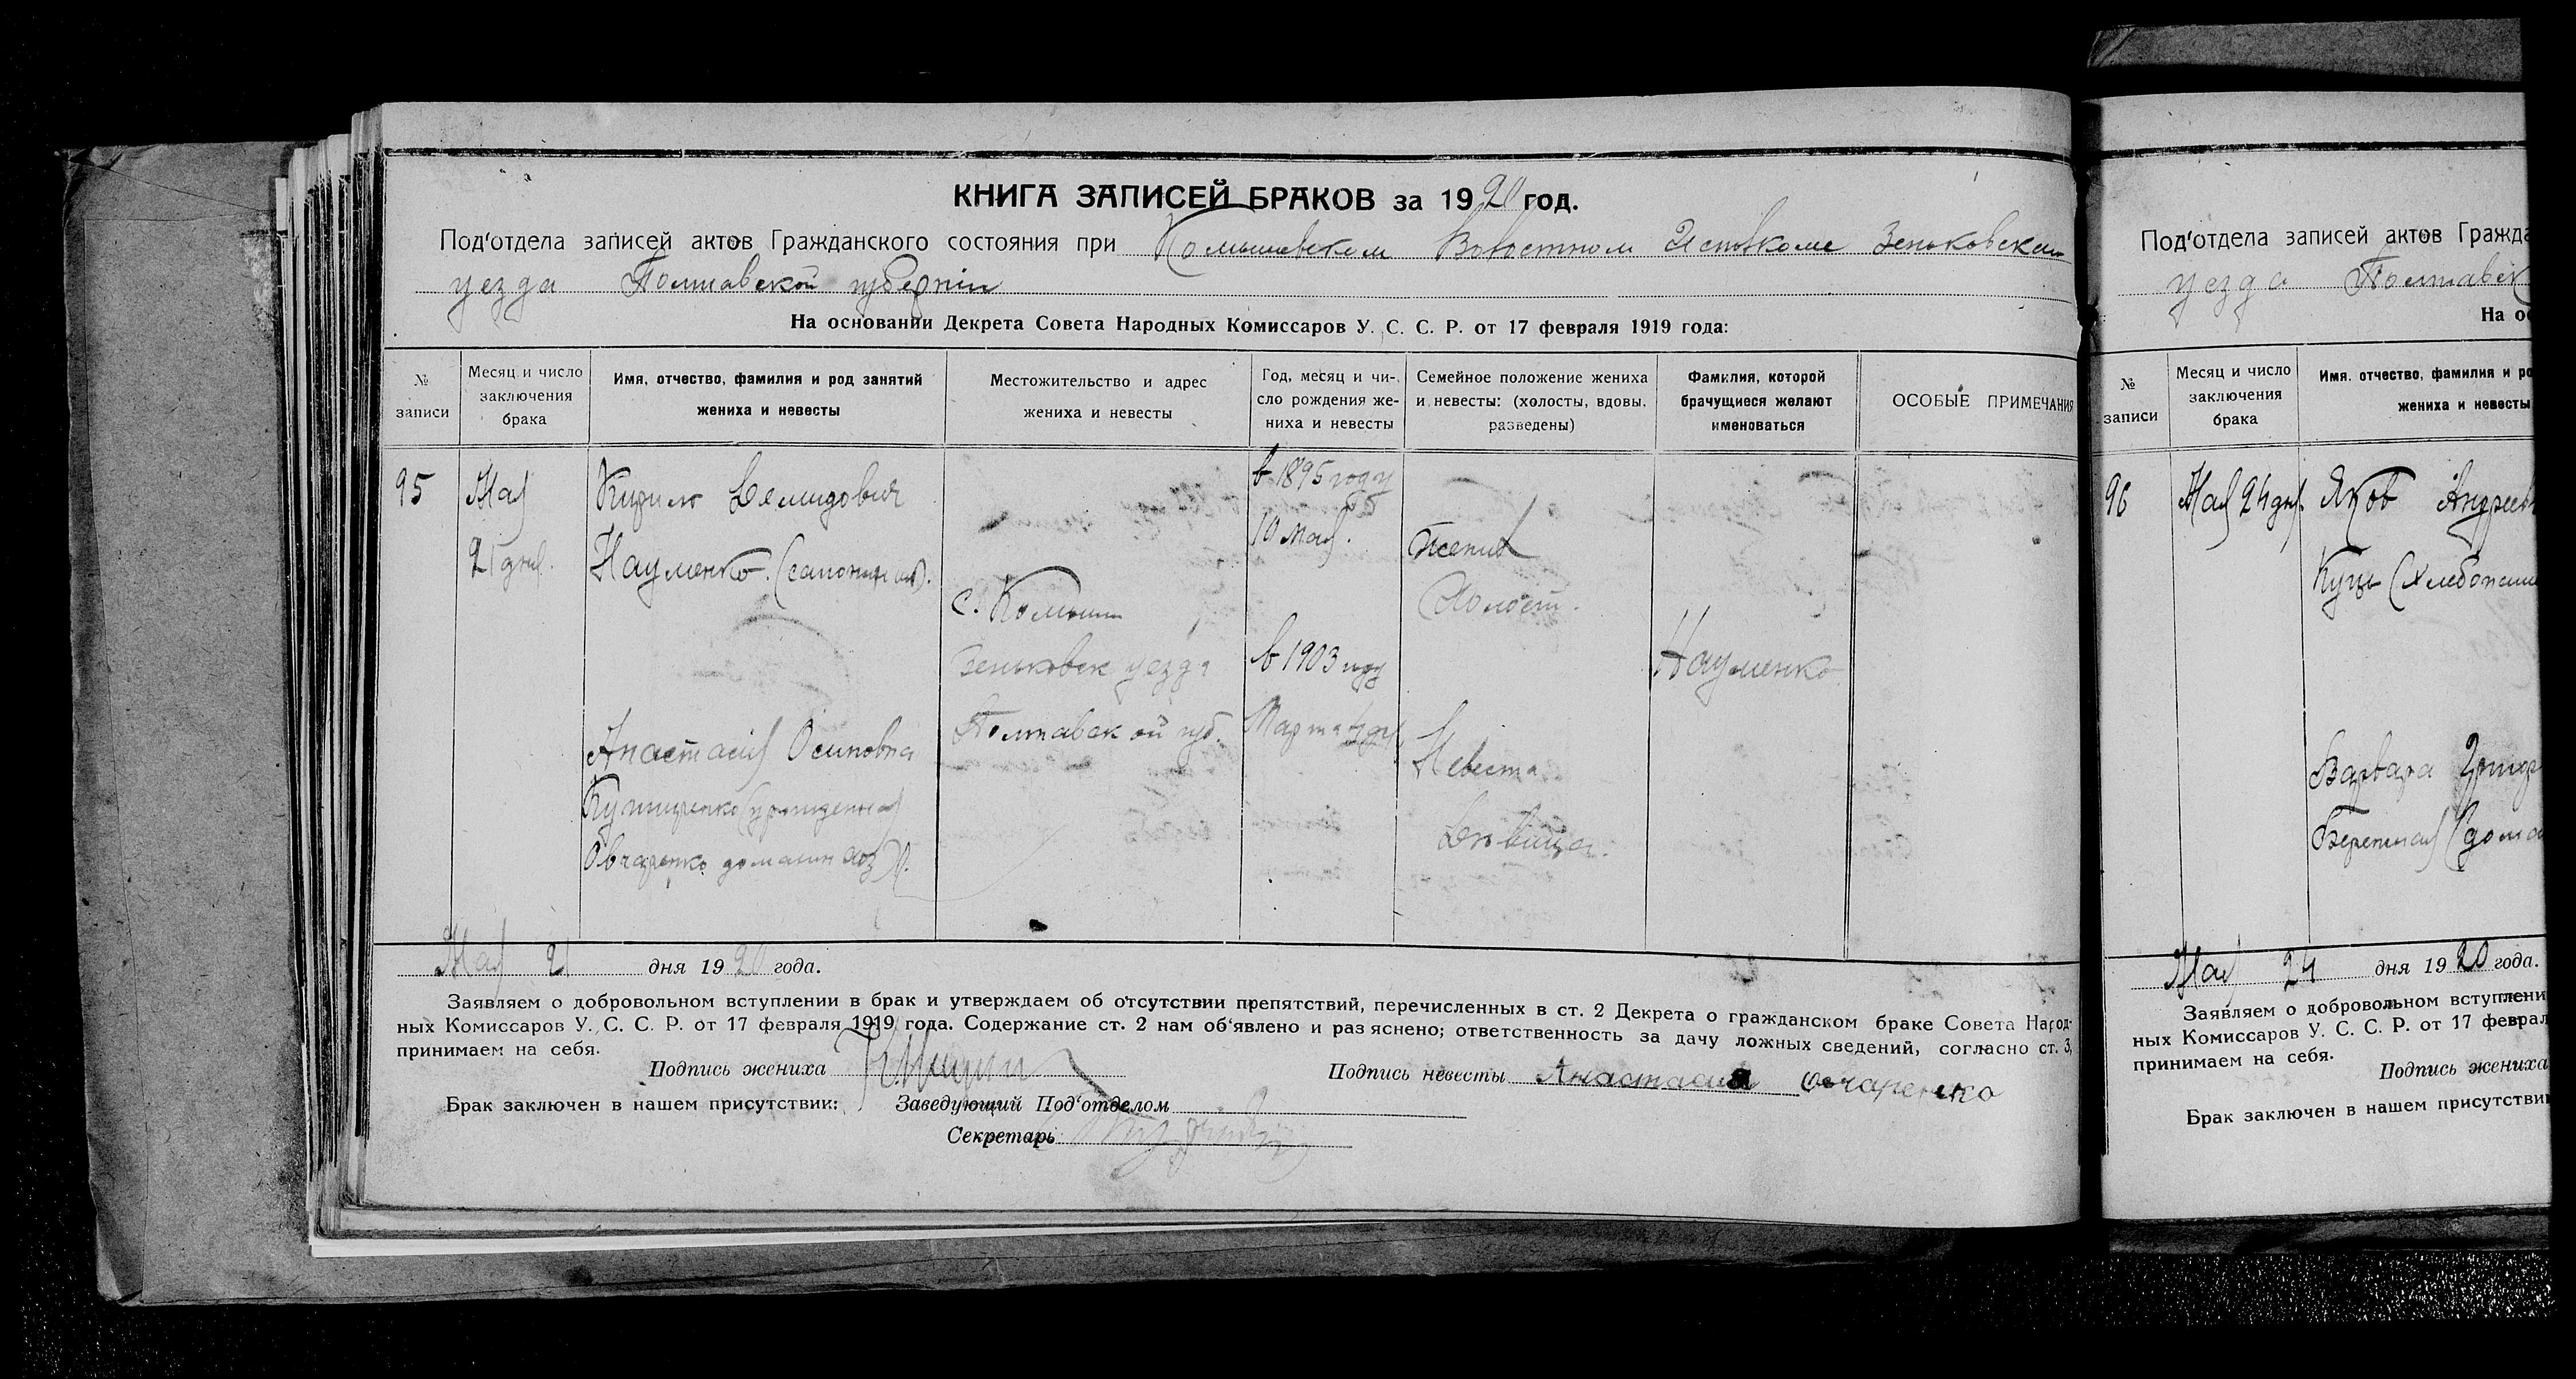 КНИГА ЗАПИСЕЙ БРАКОВ за 1920 год.
Под'отдела записей актов Гражданского состояния при Комышевском Волостном Исполкоме Зеньковскаго
уезда Полтавской губернии
На основании Декрета Совета Народных Комиссаров У. С. С. Р. от 17 февраля 1919 года:
№ записи
Месяц и число заключения брака
Имя, отчество, фамилия и род занятий жениха и невесты
Местожительство и адрес жениха и невесты
Год, месяц и число рождения жениха и невесты
Семейное положение жениха и невесты: (холосты, вдовы, разведены)
Фамилия, которой брачущиеся желают именоваться
ОСОБЫЕ ПРИМЕЧАНИЯ
95
Мая
21 дня.
Кирило Демидович
Науменко. (сапожник).
Анастасия Осиповна
Кушниренко (урожденная
Овчаренко домашн хоз).
с. Комыши
Зеньковск уезда
Полтавской губ.
в 1895 году
10 мая.
в 1903 году
Марта
Жених
Холост.
Невеста
Вдовица.
Науменко
Мая 21 дня 1920 года.
Заявляем о добровольном вступлении в брак и утверждаем об отсутствии препятствий, перечисленных в ст. 2 Декрета о гражданском браке Совета Народ-
ных Комиссаров У. С. С. Р. от 17 февраля 1919 года. Содержание ст. 2 нам об'явлено и раз яснено; ответственность за дачу ложных сведений, согласно ст. 3,
принимаем на себя.
Подпись жениха
Подпись невесты Анастасия Овчаренко
Брак заключен в нашем присутствии: Заведующий Под'отделом
Секретарь
Под'отдела записей актов Гражда
уезда Полтавск
На ос
№ записи
Месяц и число заключения брака
Имя, отчество, фамилия и ро
жениха и невесты
96
Мая 24 дня.
Яков Андреев
Куць (хлебопаш
Варвара Григор
Бережная (дома
Мая 24 дня 1920 года.
Заявляем о добровольном вступлени
ных Комиссаров У. С. С. Р. от 17 феврал
принимаем на себя.
Подпись жениха
Брак заключен в нашем присутстви